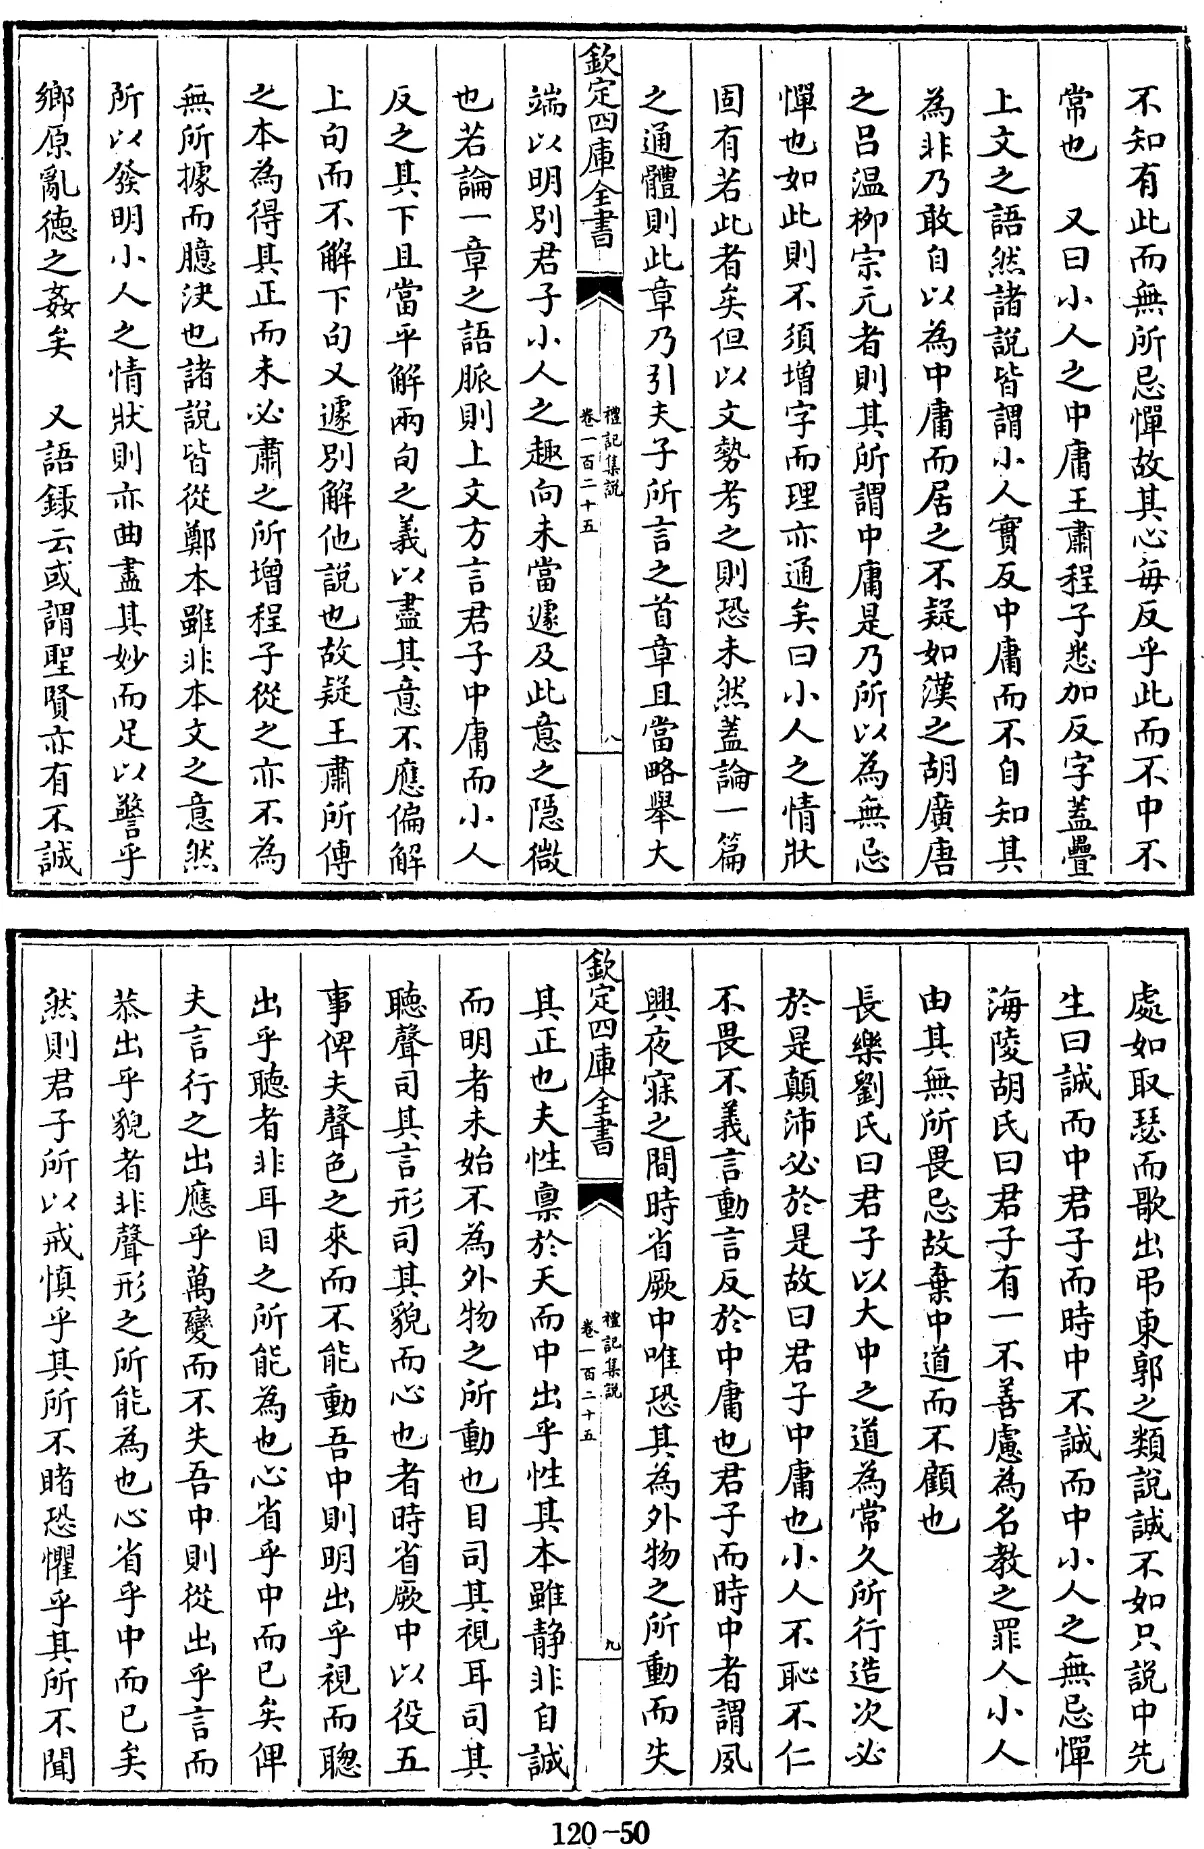 不知有此而無所忌憚故其心每反乎此而不中不
常也　又曰小人之中庸王肅程子悉加反字蓋疊
上文之語然諸說皆謂小人實反中庸而不自知其
為非乃敢自以為中庸而居之不疑如漢之胡廣唐
之呂温柳宗元者則其所謂中庸是乃所以為無忌
憚也如此則不須增字而理亦通矣曰小人之情狀
固有若此者矣但以文勢考之則恐未然蓋論一篇
之通體則此章乃引夫子所言之首章且當略舉大
欽定四庫全書
禮記集說
卷一百二十五
八
端以明別君子小人之趣向未當遽及此意之隱微
也若論一章之語脈則上文方言君子中庸而小人
反之其下且當平解兩句之義以盡其意不應偏解
上句而不解下句又遽別解他說也故疑王肅所傳
之本為得其正而未必肅之所增程子從之亦不為
無所據而臆決也諸說皆從鄭本雖非本文之意然
所以發明小人之情狀則亦曲盡其妙而足以警乎
鄉原亂德之姦矣　又語録云或謂聖賢亦有不誠
處如取瑟而歌出弔東郭之類說誠不如只說中先
生曰誠而中君子而時中不誠而中小人之無忌憚
海陵胡氏曰君子有一不善慮為名教之罪人小人
由其無所畏忌故棄中道而不顧也
長樂劉氏曰君子以大中之道為常久所行造次必
於是顛沛必於是故曰君子中庸也小人不恥不仁
不畏不義言動言反於中庸也君子而時中者謂夙
興夜寐之間時省厥中唯恐其為外物之所動而失
欽定四庫全書
禮記集說
卷一百二十五
九
其正也夫性禀於天而中出乎性其本雖静非自誠
而明者未始不為外物之所動也目司其視耳司其
聽聲司其言形司其貌而心也者時省厥中以役五
事俾夫聲色之來而不能動吾中則明出乎視而聰
出乎聽者非耳目之所能為也心省乎中而已矣俾
夫言行之出應乎萬變而不失吾中則從出乎言而
恭出乎貌者非聲形之所能為也心省乎中而已矣
然則君子所以戒慎乎其所不睹恐懼乎其所不聞
120-50